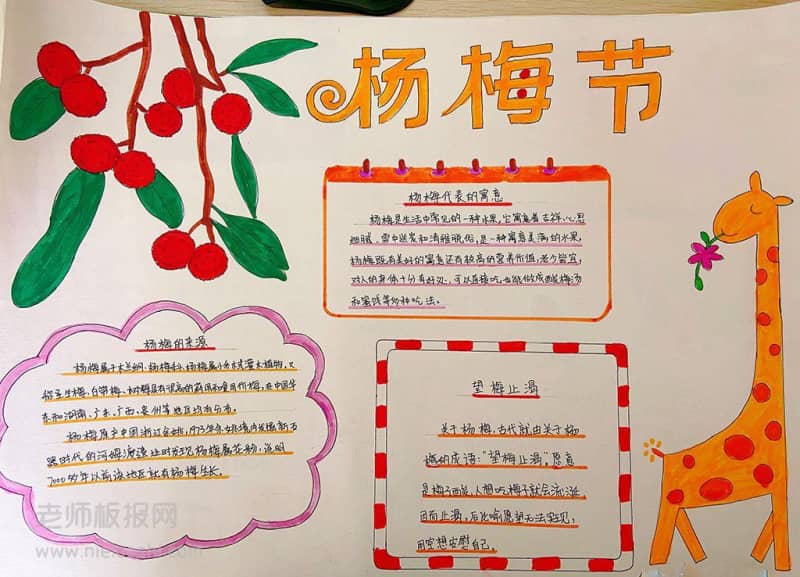 杨梅节
杨梅代表的寓意
杨梅是生活中常见的一种水果,它寓意着吉祥、心思
细腻、雪中送炭和清雅脱俗,是一种寓意美满的水果,
杨梅既有美好的寓意还有极高的营养价值,老少皆宜,
对人的身体十分有好处,可以直接吃,也能做成酸梅汤
和蜜饯等多种吃法。
杨梅的来源
杨梅属于木兰纲、杨梅科、杨梅属小乔木或灌木植物,又
称圣生梅、白蒂梅、树梅具有很高的药用和食用价值,在中国华
东和湖南、广东、广西、贵州等地区均有分布。
杨梅原产中国浙江余姚,1973年余姚境内发掘新石
器时代的河姆渡遗址时发现杨梅属花粉,说明
7000多年以前该地区就有杨梅生长
望梅止渴
关于杨梅,古代就由关于杨
梅的成语:"望梅止渴",原意
是梅子酸,人想吃梅子就会流涎,
因而止渴,后比喻愿望无法实现,
用空想安慰自己。
老师板报网